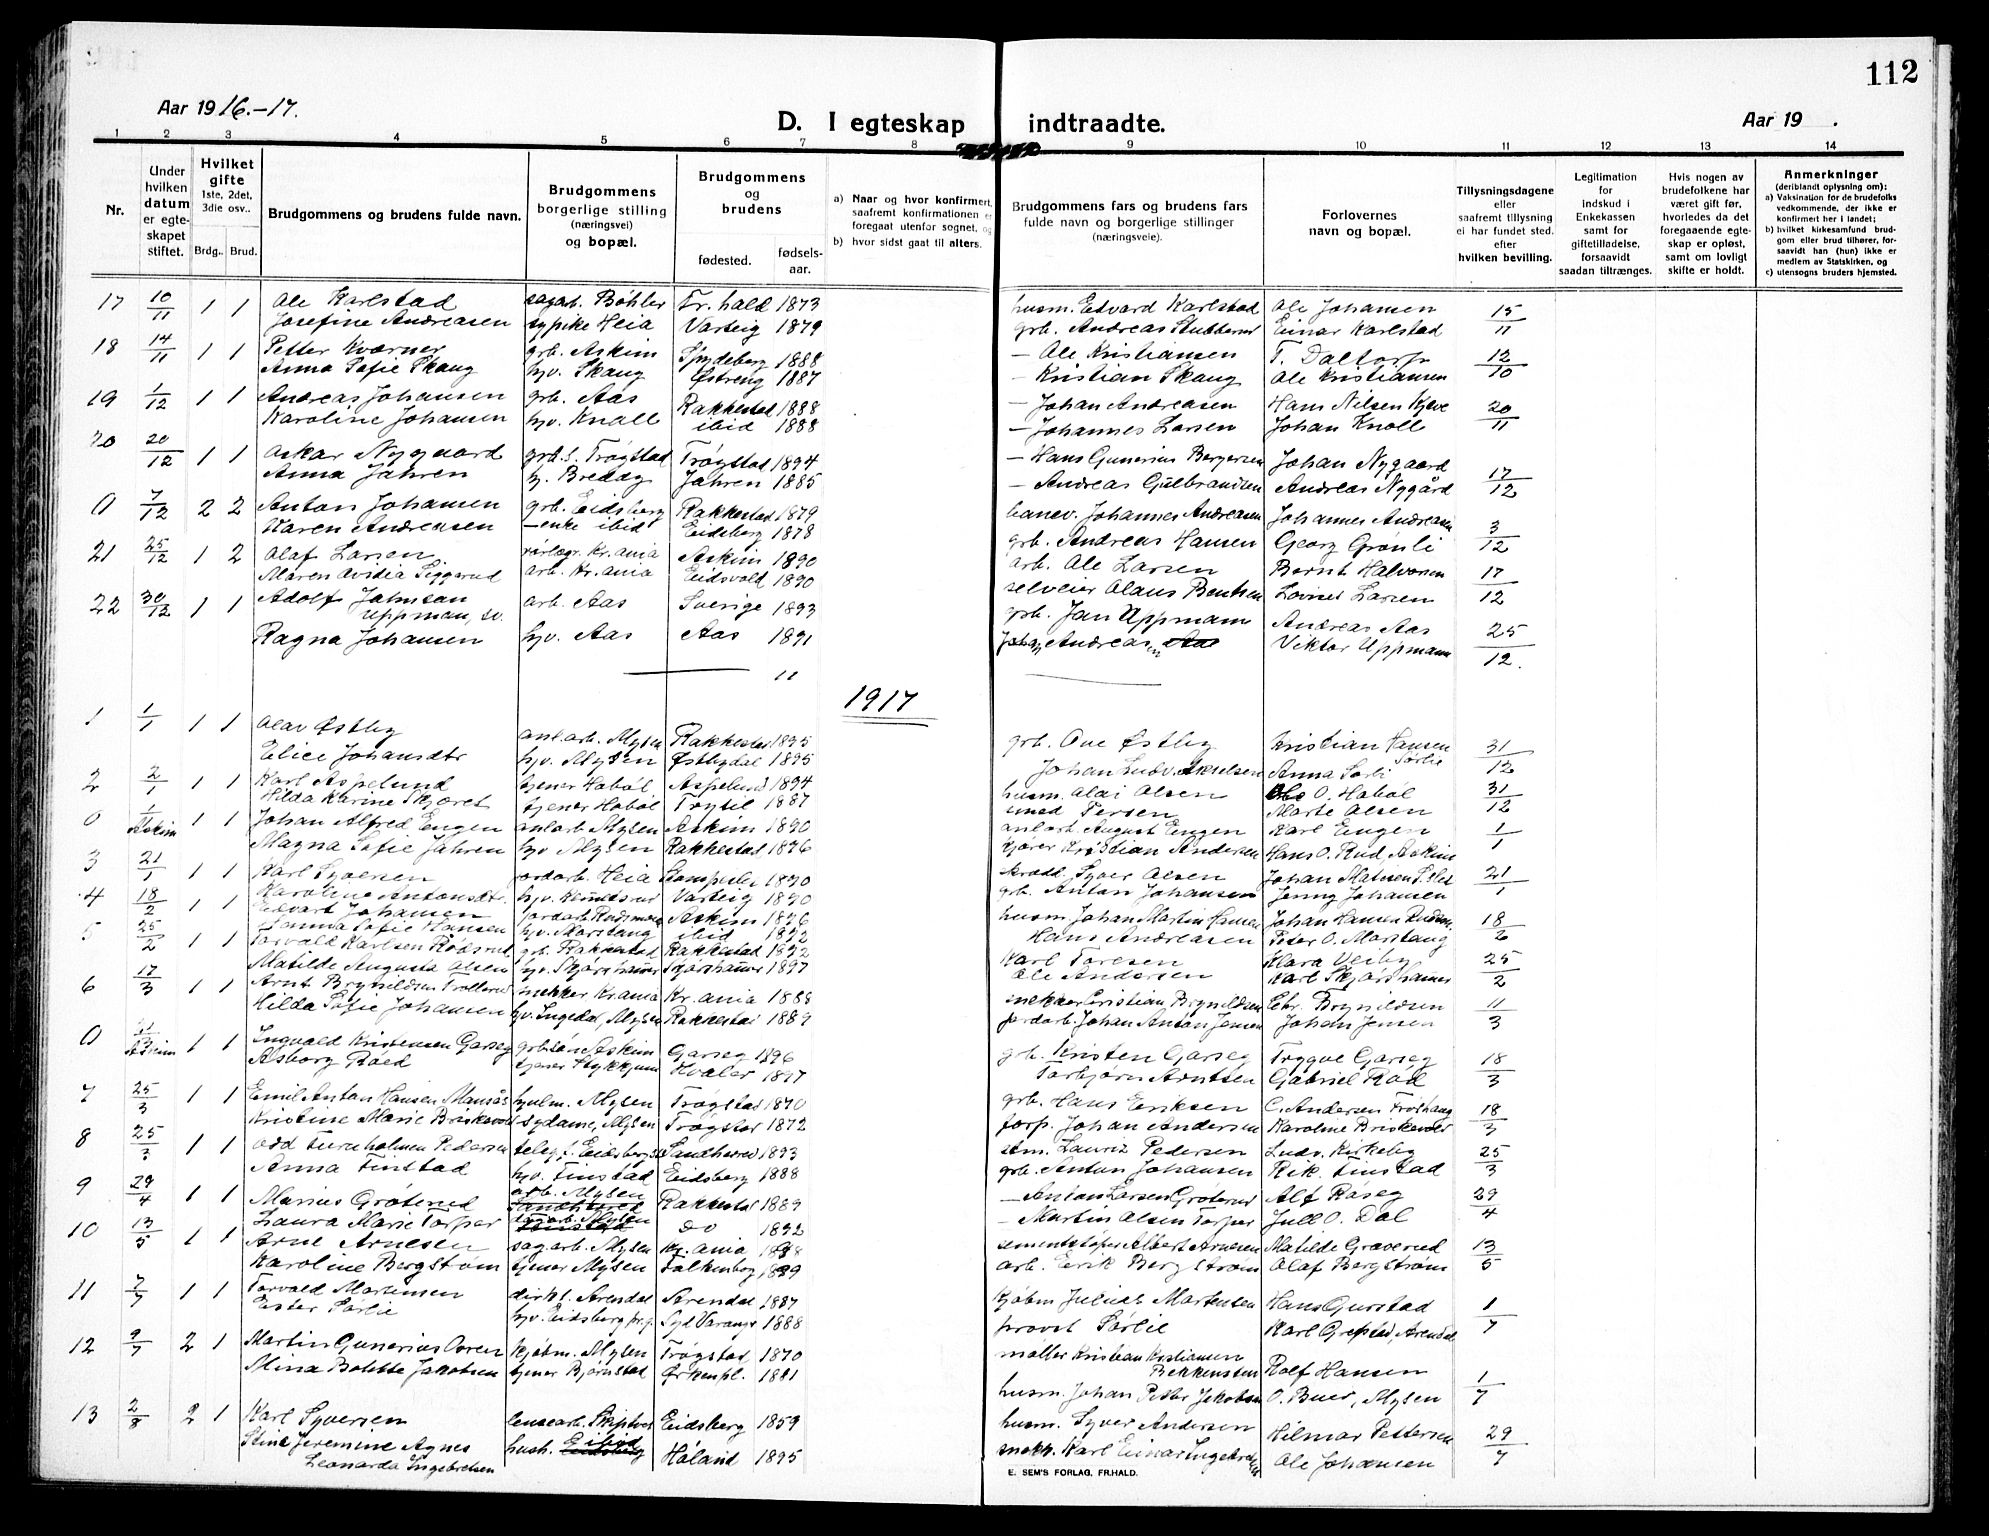 112
Aar 1916.-17.
D. I egteskap indtraadte.
Aar 19 .
1 2 3 4 5 6 7 8 9 10 11 12 13 14
Nr.
Under hvilken datum er egteskapet stiftet.
Hvilket gifte 1ste, 2det, 3die osv..
Brdg.. Brud.
Brudgommens og brudens fulde navn.
Brudgommens borgerlige stilling (næringsvei) og bopæl.
Brudgommens og brudens
fødested. fødselsaar.
a) Naar og hvor konfirmert, saafremt konfirmationen er foregaat utenfor sognet, og
b) hvor sidst gaat til alters.
Brudgommens fars og brudens fars fulde navn og borgerlige stillinger (næringsveie).
Forlovernes navn og bopæl.
Tillysningsdagene eller saafremt tillysning ei har fundet sted. efter hvilken bevilling.
Legitimation for indskud i Enkekassen samt for giftetilladelse, forsaavidt saadan tiltrænges.
Hvis nogen av brudefolkene har været gift før, hvorledes da det foregaaende egteskap er opløst, samt om lovligt skifte er holdt.
Anmerkninger (deriblandt oplysning om):
a) Vaksination for de brudefolks vedkommende, der ikke er konfirmert her i landet;
b) hvilket kirkesamfund brudgom eller brud tilhører, forsaavidt han (hun) ikke er medlem av Statskirken, og
c) utensogns bruders hjemsted.
17 10/11 1 1 Ole Karlstad sagarb. Bøhler Fr.hald 1873 husm. Edvard Karlstad Ole Johansen 15/11
Josefine Andreasen sypike Heia Varteig 1879 grb. Andreas Stubberud Einar Karlstad
18 14/11 1 1 Petter Kværner grb. Askim Spydeberg 1888 — Ole Kristiansen T. Daltorp 12/10
Anna Sofie Skaug hjv. Skaug Østreng 1887 — Kristian Skaug Ole Kristiansen
19 1/12 1 1 Andreas Johansen grb. Aas Rakkestad 1888 — Johan Andreasen Hans Nilsen 20/11
Karoline Johansen hjv. Knoll ibid 1888 — Johannes Larsen Johan Knoll
20 20/12 1 1 Oskar Nygaard grb.s. Trøgstad Trøgstad 1894 — Hans Gunerius Bergersen Johan Nygaard 17/12
Anna Jahren Jahren 1885 — Andreas Gulbrandsen Andreas Nygård
0 7/12 2 2 Anton Johansen grb. Eidsberg Rakkestad 1879 banev. Johannes Andreasen Johannes Andreasen 3/12
Karen Andreasen — enke ibid Eidsberg 1878 grb. Andreas Hansen Georg Grønli
21 25/12 1 2 Olaf Larsen rørlegr. Kr.ania Askim 1890 arb. Ole Larsen Bernt Halvorsen 17/12
Maren Ovidia Siggerud arb. Kr.ania Eidsvold 1890 selveier Olaus Bentsen Larsen
22 30/12 1 1 Adolf Jahnsan Uppman, sv. arb. Aas Sverige 1893 grb. Jan Uppmann Andreas Aas 25/12.
Ragna Johansen hjv. Aas Aas 1891 Andreas Viktor Uppmann
11
1917
1 1/1 1 1 Olav Østby anl.arb. Mysen Rakkestad 1895 grb. Ove Østby Kristian Hansen Sørlie 31/12
Elice Johansdtr hjv. Mysen Østbydal 1895 Johan Ludv. Akselsen Anna Sørli
2 2/1 1 1 Karl Aspelund tjener Hobøl Aspelund 1894 husm. Olai Olsen O. Hobøl 31/12
Hilda Karine Skjøret tjener Hobøl Trysil 1887 smed Persen Marte Olsen
0 1/1 Askim 1 1 Johan Alfred Engen anl.arb Mysen Askim 1890 anl.arb. August Engen Karl Engen 1/1
Magna Sofie Jahren hjv Mysen Rakkestad 1896 kjører Kristian Andersen Hans O. Rud, Askim
3 21/1 1 1 Karl Syversen jordarb. Heia 1890 Syver Olsen Johan 21/1
Karoline Antonsdtr. hjv. Varteig 1890 grb. Anton Johansen Jenny Johansen
4 18/2 1 1 Edvart Johansen jordarb. Askim 1896 husm. Johan Martin Hansen Johan Hansen 18/2
Sofie Hansen hjv. Morstang ibid 1892 Hans Andreasen Peter O. Morstang
5 25/2 1 1 Torvald Karlsen Rødsrud grb. Rakkestad Rakkestad 1892 Karl Toresen Klara Veiby 25/2
Matilde Augusta Olsen hjv. Skjørshamer Skjørshamer 1897 Ole Andersen Karl Skjørshamer
6 17/3 1 1 Arnt Brynildsen Trollerud snekker Kr.ania Kr.ania 1888 snekker Cristian Brynildsen Chr. Brynildsen 11/3
Hilda Sofie Johansen hjv. Ingedal, Mysen Rakkestad 1889 jordarb. Johan Anton Jensen Johan Jensen
0 Askim 1 1 Ingvald Kristensen Garseg grb.søn Askim Garseg 1896 grb. Kristen Garseg Tryggve Garseg 18/3
Asborg Røed tjener Hvaler 1897 Torbjørn Arntsen Gabriel Rød
7 25/3 1 1 Emil Anton Hansen Mysen Trøgstad 1870 grb. Hans Eriksen C. Andersen Froshaug 18/3
Kristine Marie Briskevold sydame, Mysen Trøgstad 1872 forp. Johan Andersen Karoline Briskevold
8 25/3 1 1 Odd Pedersen Sandherred 1893 Lauriz Pedersen Ludv. Kirkeby 25/3
Anna Finstad hjv. Finstad Eidsberg 1888 grb. Anton Johansen Rik. Finstad
9 29/4 1 1 Marius Grøterud arb. Mysen Rakkestad 1889 — Anton Larsen Grøterud Alf Råseg 29/4
Laura Marie Torper Mysen do 1892 — Martin Olsen Torper Jull O. Dal
10 13/5 1 1 Arne Arnesen sagarb. Mysen Kr.ania sementstøper Albert Arnesen Matilde Graverud 13/5
Karoline Bergstrøm tjener Mysen Falkenberg arb. Erik Bergstrøm Olaf Bergstrøm
11 7/7 1 1 Torvald Mortensen dirkt. Arendal Arendal 1887 kjøbm Julius Mortensen Hans Gurstad 1/7
Ester Sørlie hjv. Eidsberg pr.g. Syd Varanger 1888 provst Sørlie Karl Grefstad, Arendal
12 9/7 2 1 Martin Gunerius Ovren kjøbm. Mysen Trøgstad 1870 møller Kristian Kristiansen Bekkensten Rolf Hansen 1/7
Mina Bolette Jakobsen tjener Bjørnstad Ørkenpl. 1881 husm. Johan Peter Jakobsen O. Buer, Mysen
13 2/8 2 1 Karl Syversen lensearb. Skiptvet Eidsberg 1859 husm. Syver Andersen Hilmar Pettersen 29/7
Stine Jeremine Agnes Leonarda Ingebretsen hush. ibid Høland 1895 snekk. Karl Einar Ingebretsen Ole Johansen
E. SEM'S FORLAG, FR.HALD.